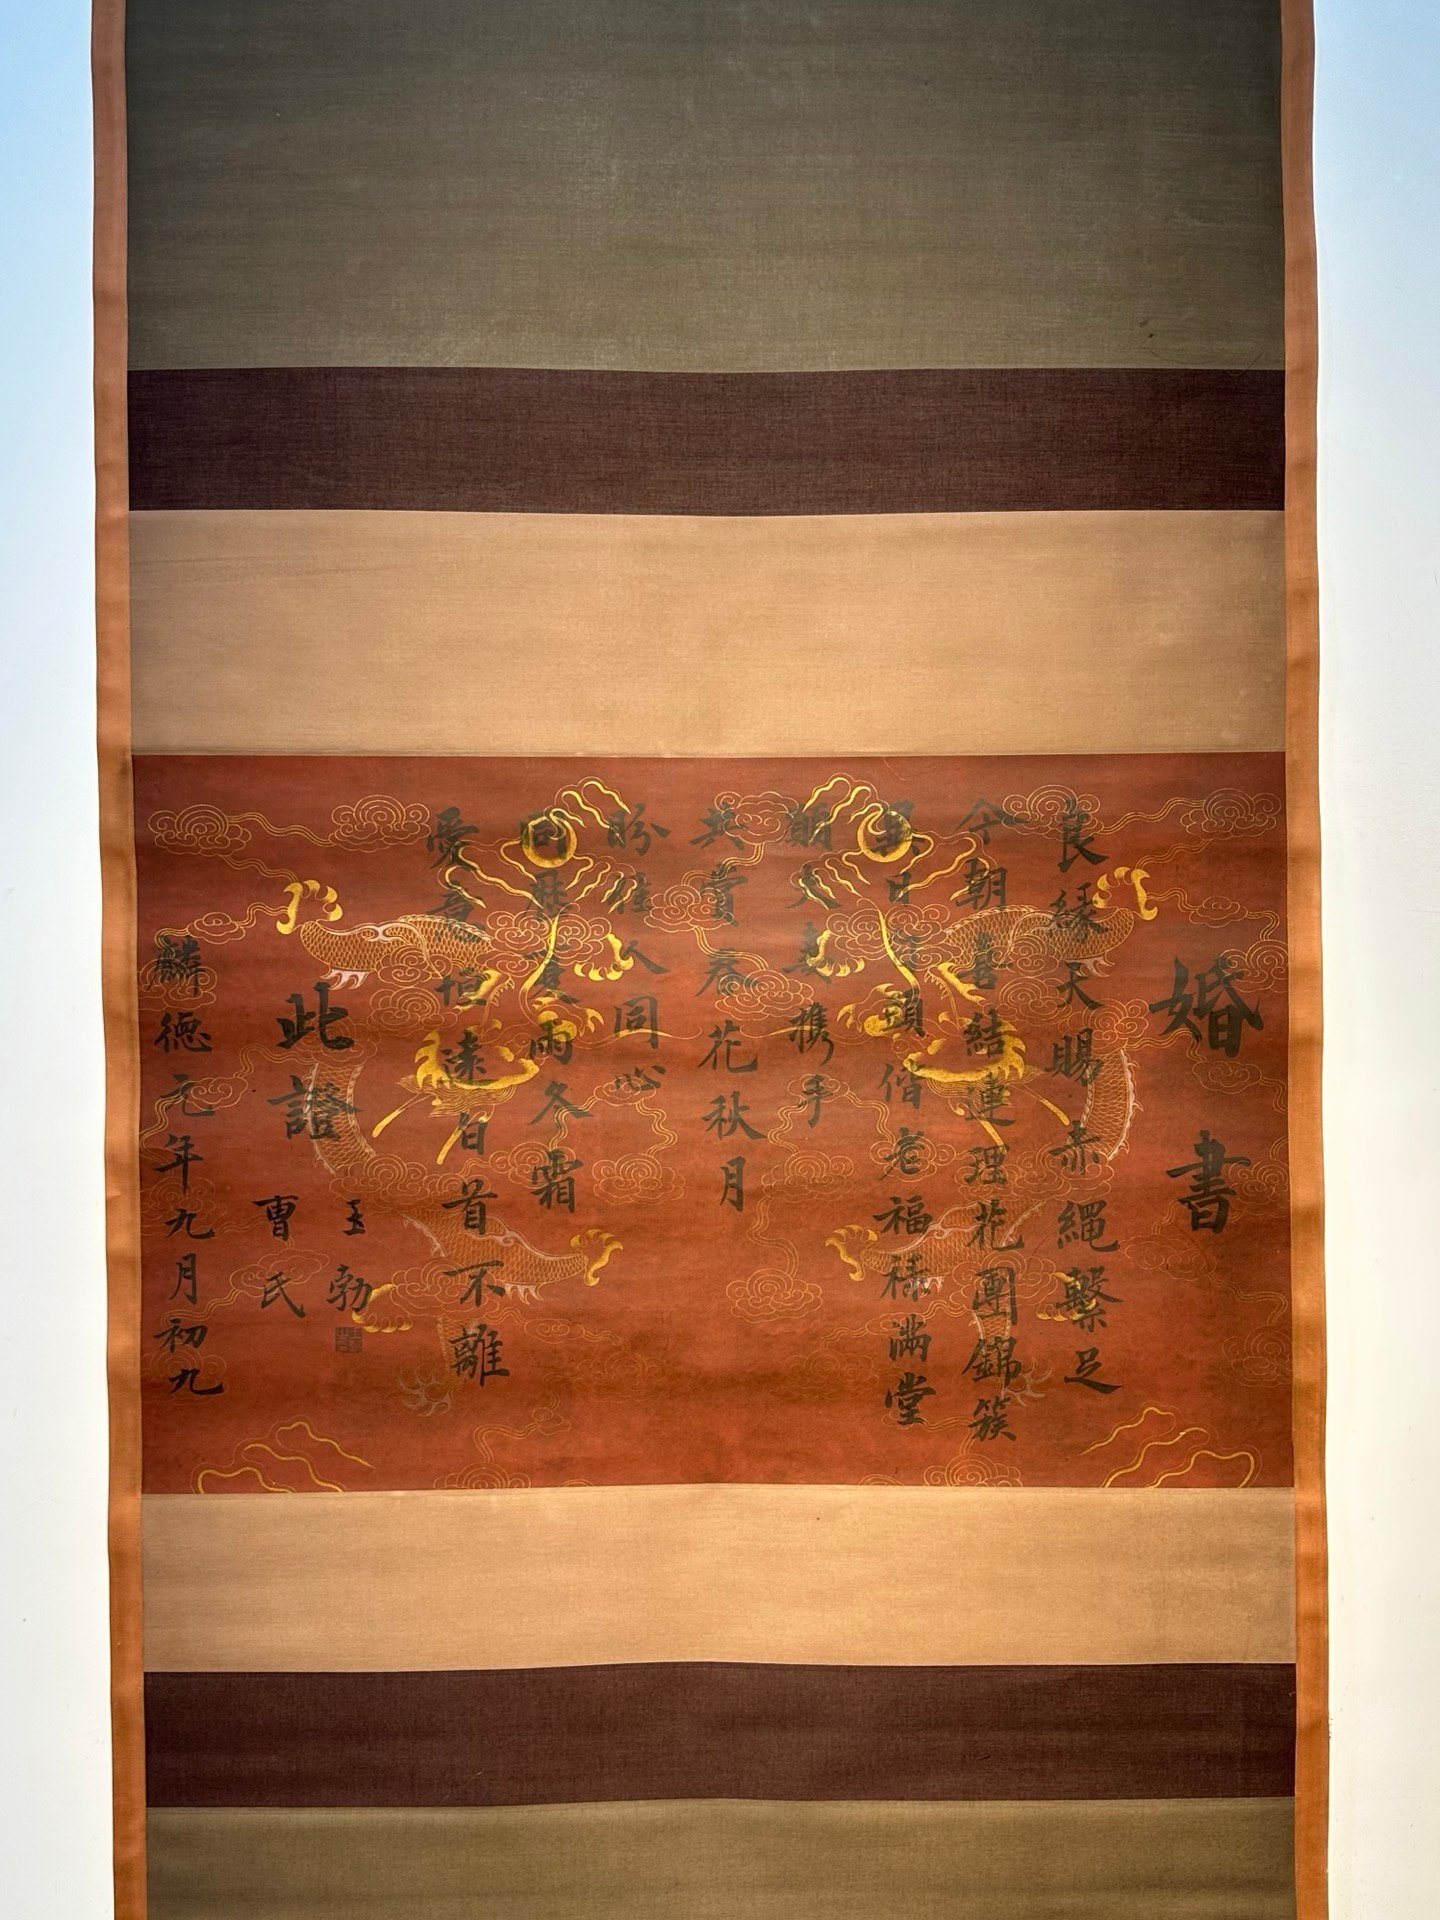 婚書
良緣天賜赤繩繫足
今朝喜結連理花團錦簇
異日頭偕老福祿滿堂
期夫妻携手
共賞春花秋月
盼佳人同心
同歷夏雨冬霜
愛意恒遠白首不離
此證
王勃
曹氏
麟德元年九月初九